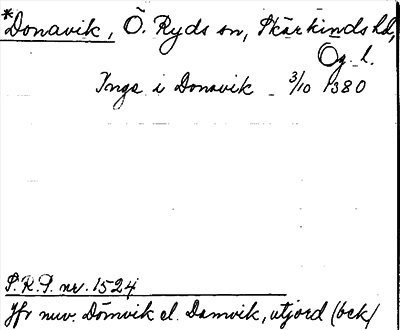 *Donavik, Ö. Ryds sn, Skärkinds hd,
Ög. l.
Inge i Donavik - 3/10 1380
S.R.P. nr. 1524
Jfr nuv. Domvik el. Damvik, utjord (bek/